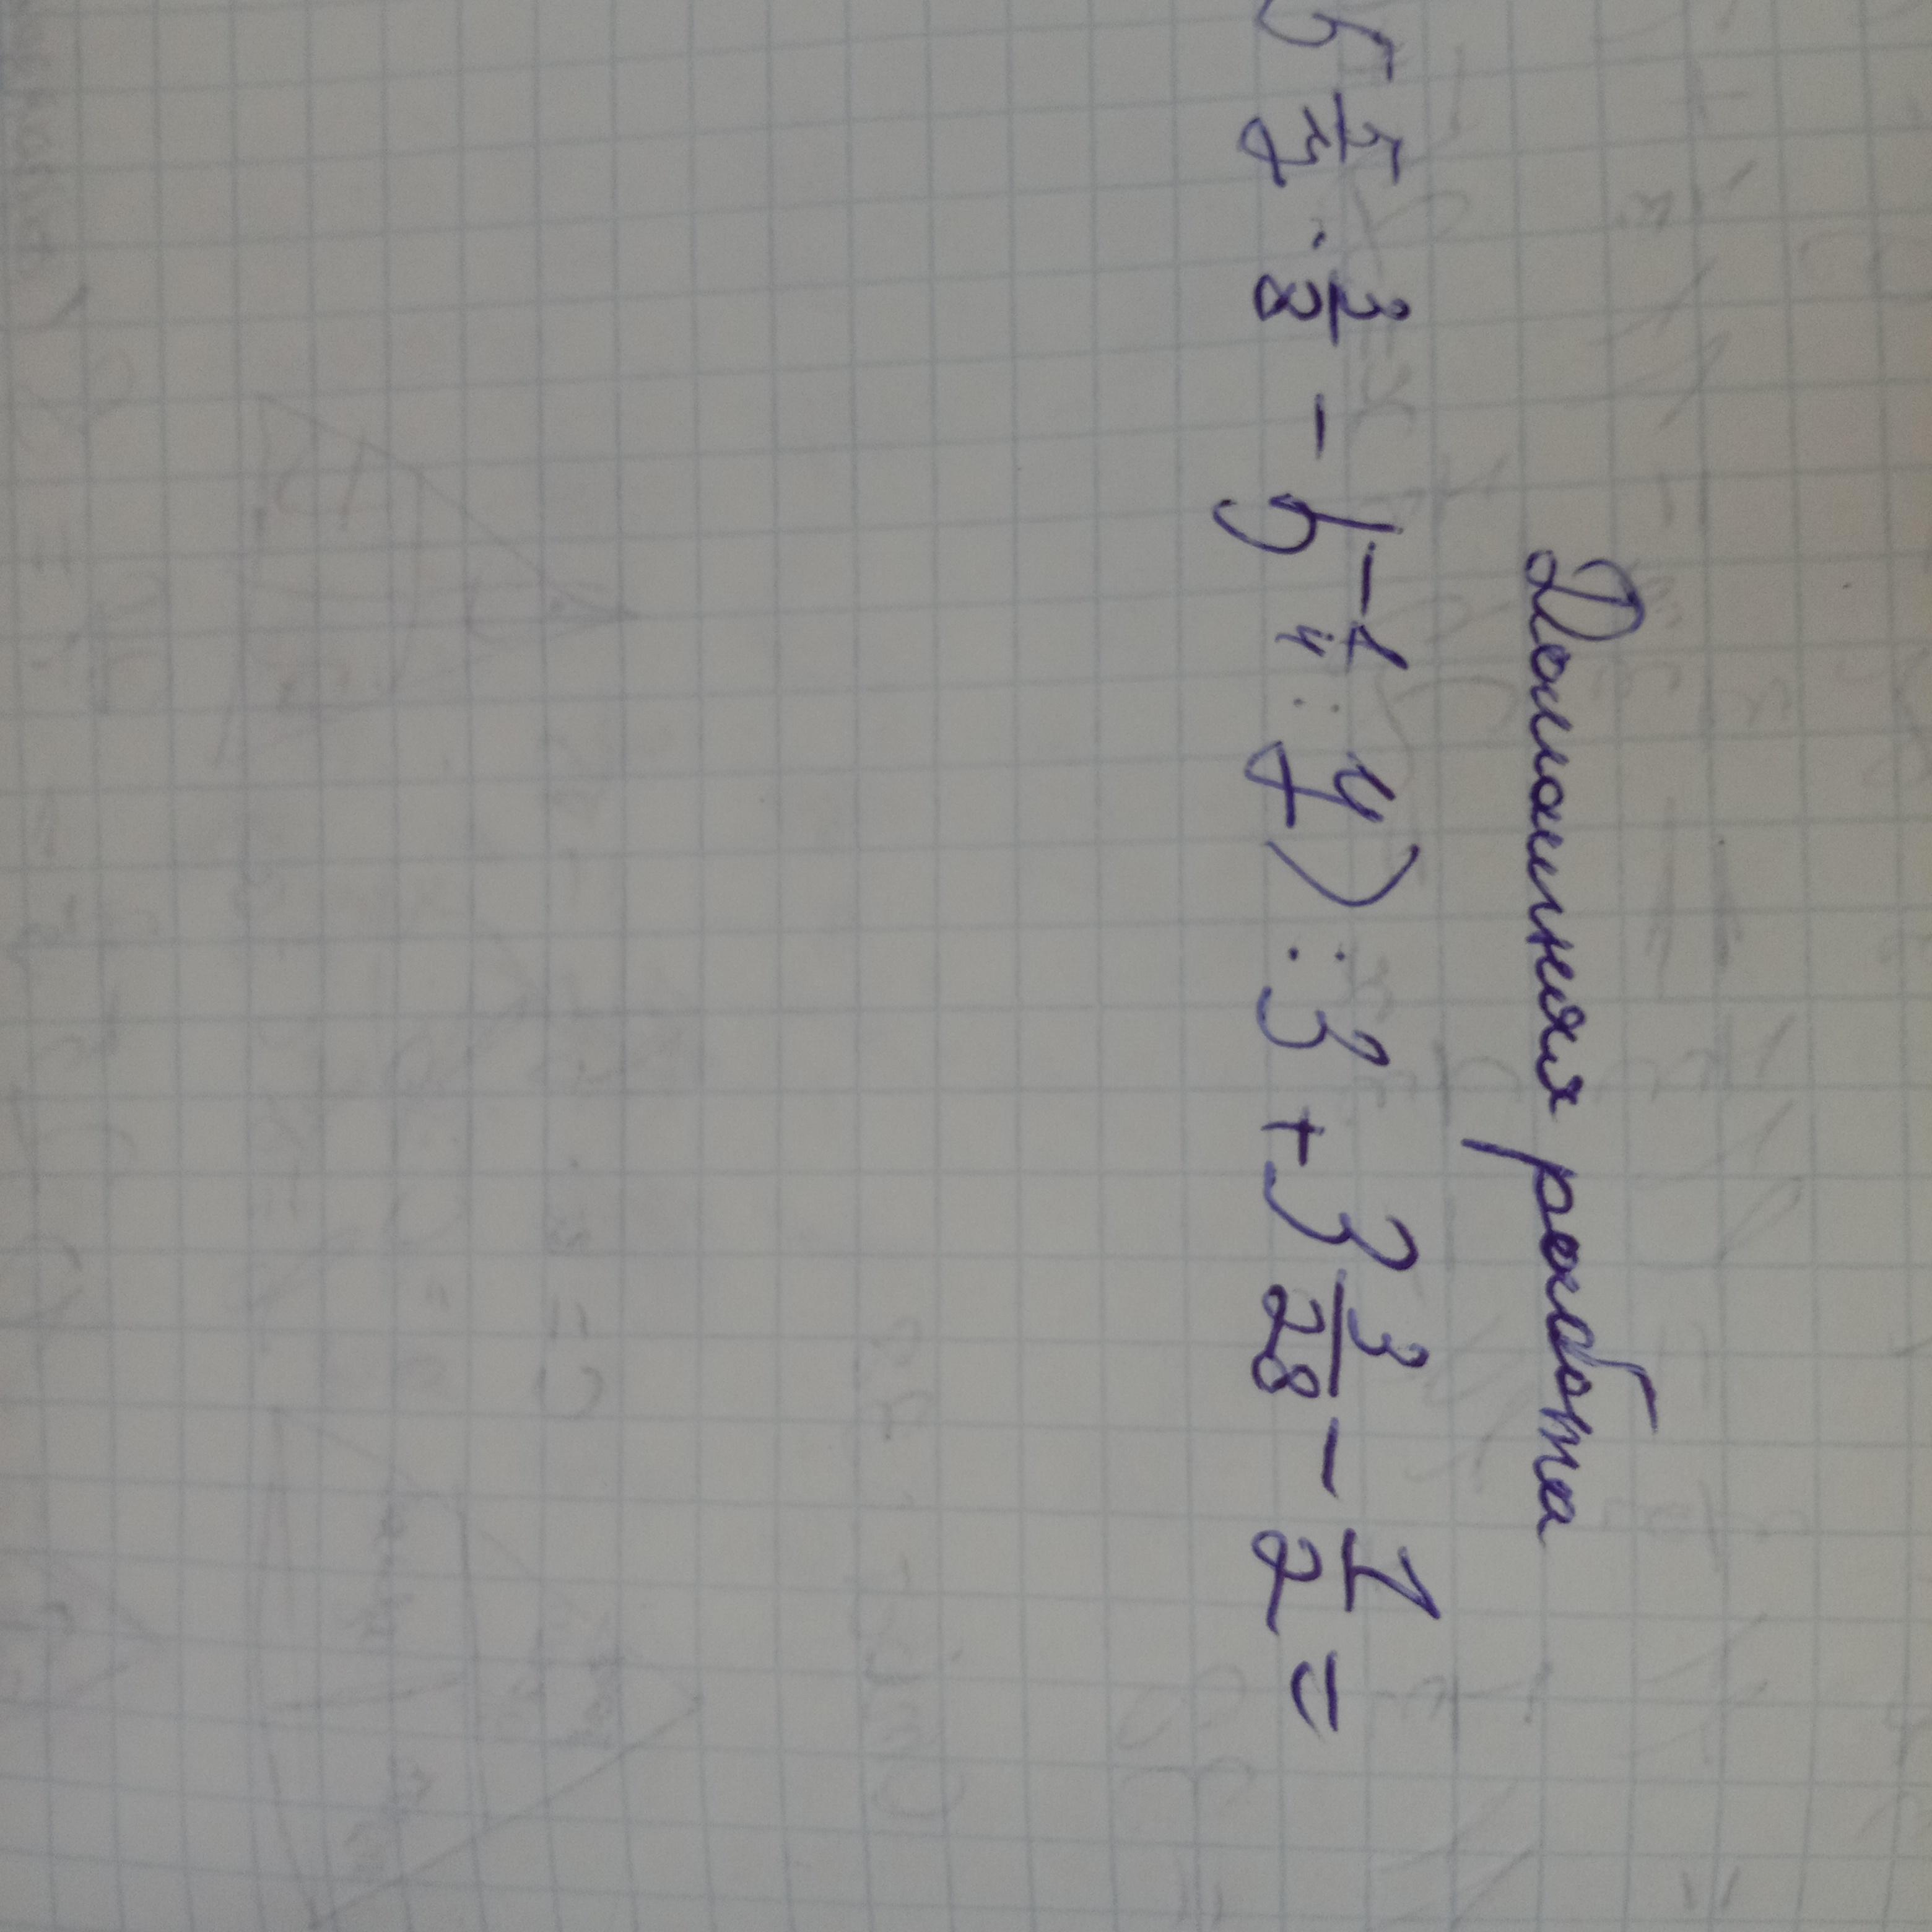 Домашняя работа
5 5/7 · 3/8 - 5 1/4 : 7) : 3 + 3 3/28 - 1/2 =